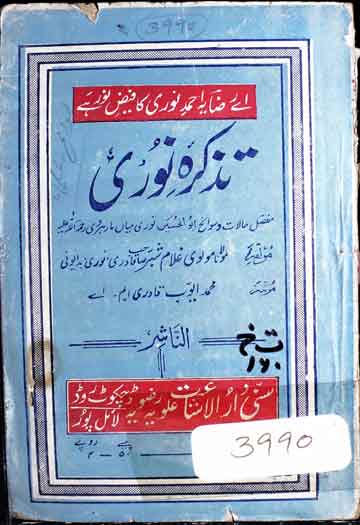 3990
اے رضا یہ احمد نوری کا فیض نور ہے
تذکرہ نوری
مفصل حالات و سوانح ابو الحسین نوری میاں مارہروی رحمۃ اللہ علیہ
مؤلفہ مولانا مولوی غلام شبر صاحب قادری نوری بدایونی
مرتبہ محمد ایوب قادری ایم۔ اے
الناشر
سنی دار الاشاعت علویہ رضویہ ڈجکوٹ روڈ
لائل پور
3990